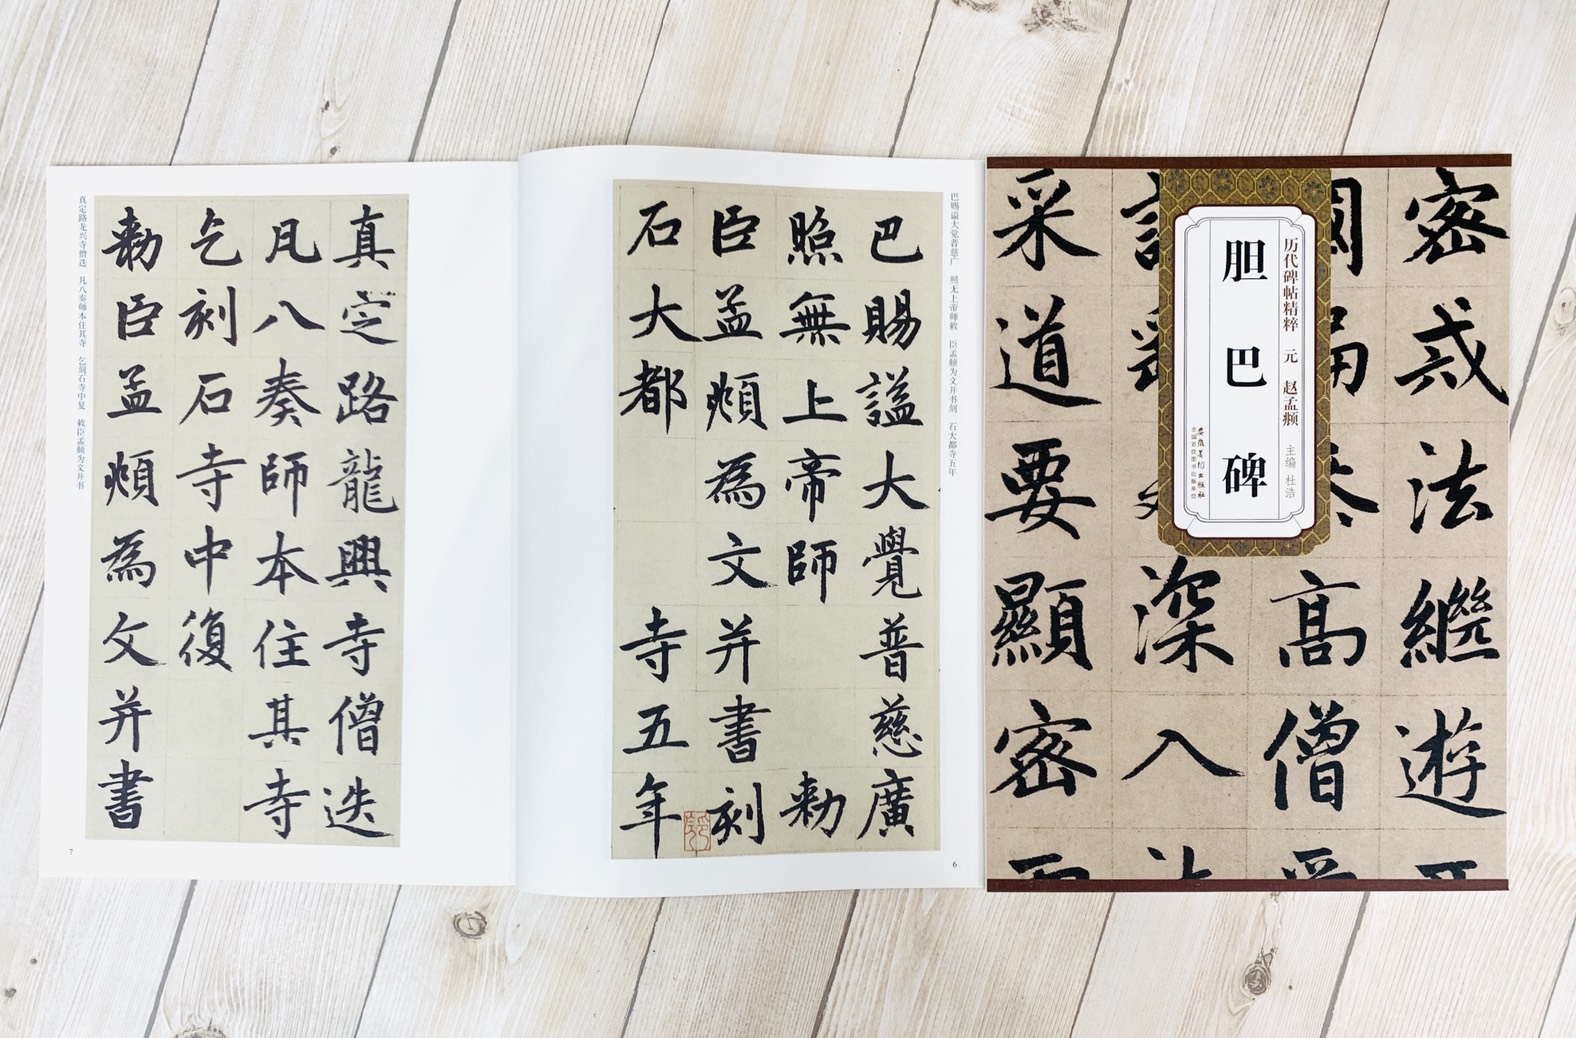 密戎法繼遊
高僧
深入
采道要顯密
历代碑帖精粹 元 赵孟頫 主编 杜浩
胆巴碑
安徽美术出版社
全国百佳图书出版单位
巴赐谥大觉普慈广 照无上帝师敕 臣孟頫为文并书刻 石大都寺五年
巴賜謚大覺普慈廣
照無上帝師 勅
臣孟頫為文并書刻
石大都 寺五年
6
真定路龍興寺僧迭
凡八奏師本住其寺
乞刻石寺中復
勅臣孟頫為文并書
真定路龙兴寺僧迭 凡八奏师本住其寺 乞刻石寺中复 敕臣孟頫为文并书
7